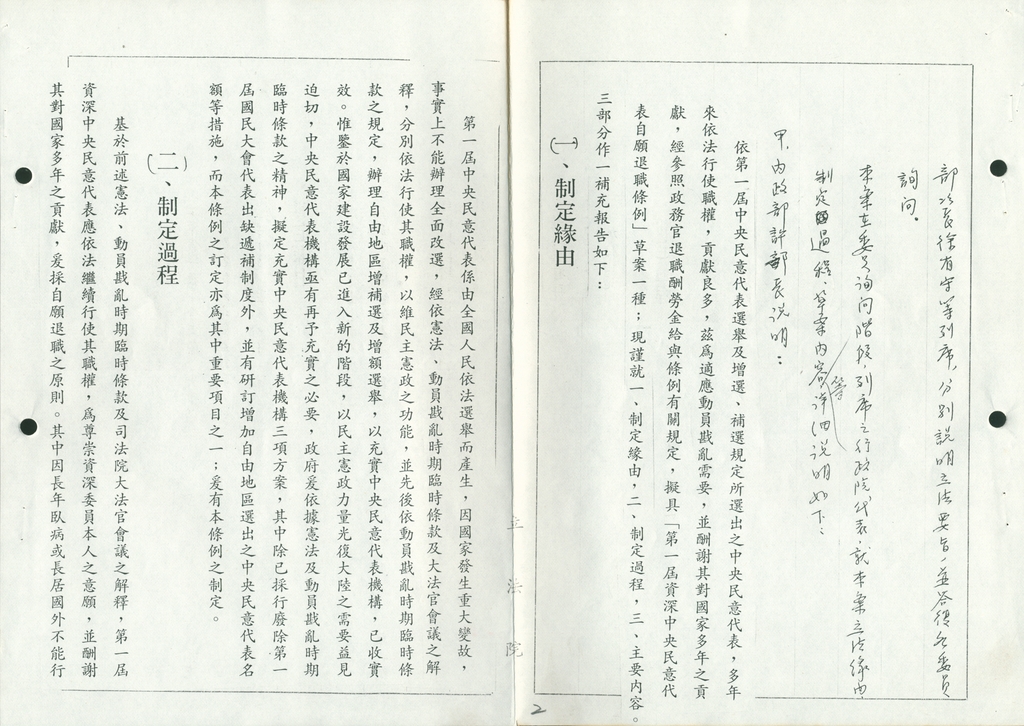 部次長徐有守等列席，分別說明立法要旨，並答復各委員
詢問。
本案在委員詢問階段，列席之行政院代表，就本案立法緣由、
制定過程、草案內容等詳細說明如下：
甲、內政部許部長說明：
依第一屆中央民意代表選舉及增選、補選規定所選出之中央民意代表，多年
來依法行使職權，貢獻良多，茲為適應動員戡亂需要，並酬謝其對國家多年之貢
獻，經參照政務官退職酬勞金給與條例有關規定，擬具「第一屆資深中央民意代
表自願退職條例」草案一種；現謹就一、制定緣由，二、制定過程，三、主要內容。
三部分作一補充報告如下：
㈠、制定緣由
第一屆中央民意代表係由全國人民依法選舉而產生，因國家發生重大變故，
事實上不能辦理全面改選，經依憲法、動員戡亂時期臨時條款及大法官會議之解
釋，分別依法行使其職權，以維民主憲政之功能，並先後依動員戡亂時期臨時條
款之規定，辦理自由地區增補選及增額選舉，以充實中央民意代表機構，已收實
效。惟鑒於國家建設發展已進入新的階段，以民主憲政力量光復大陸之需要益見
迫切，中央民意代表機構亟有再予充實之必要，政府爰依據憲法及動員戡亂時期
臨時條款之精神，擬定充實中央民意代表機構三項方案，其中除已採行廢除第一
屆國民大會代表出缺遞補制度外，並有研訂增加自由地區選出之中央民意代表名
額等措施，而本條例之訂定亦為其中重要項目之一；爰有本條例之制定。
㈡、制定過程
基於前述憲法、動員戡亂時期臨時條款及司法院大法官會議之解釋，第一屆
資深中央民意代表應依法繼續行使其職權，為尊崇資深委員本人之意願，並酬謝
其對國家多年之貢獻，爰採自願退職之原則。其中因長年臥病或長居國外不能行
立法院
2